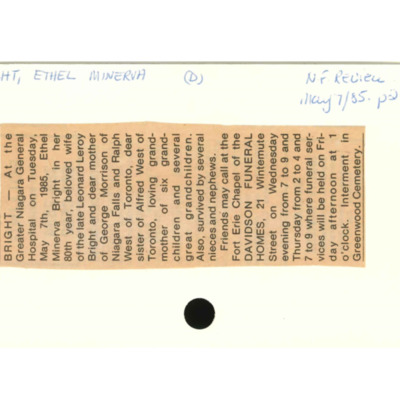 HT, ETHEL MINERVA (D) NF REVIEW
May 7/85.
BRIGHT — At the
Greater Niagara General
Hospital on Tuesday,
May 7th, 1985, Ethel
Minerva Bright in her
80th year, beloved wife
of the late Leonard Leroy
Bright and dear mother
of George Morrison of
Niagara Falls and Ralph
West of Toronto, dear
sister of Alfred West of
Toronto, loving grand-
mother of six grand-
children and several
great grandchildren.
Also, survived by several
nieces and nephews.
Friends may call at the
Fort Erie Chapel of the
DAVIDSON FUNERAL
HOMES, 21 Wintemute
Street on Wednesday
evening from 7 to 9 and
Thursday from 2 to 4 and
7 to 9 were funeral ser-
vices will be held on Fri-
day afternoon at 1
o'clock. Interment, in
Greenwood Cemetery.